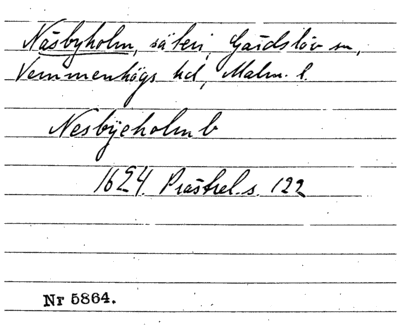 Näsbyholm, säteri, Gärdslöv sn,
Vemmenhögs hd, Malm. l.
Nesbÿeholm b
1624. Prästrel. s. 122
Nr 5864.